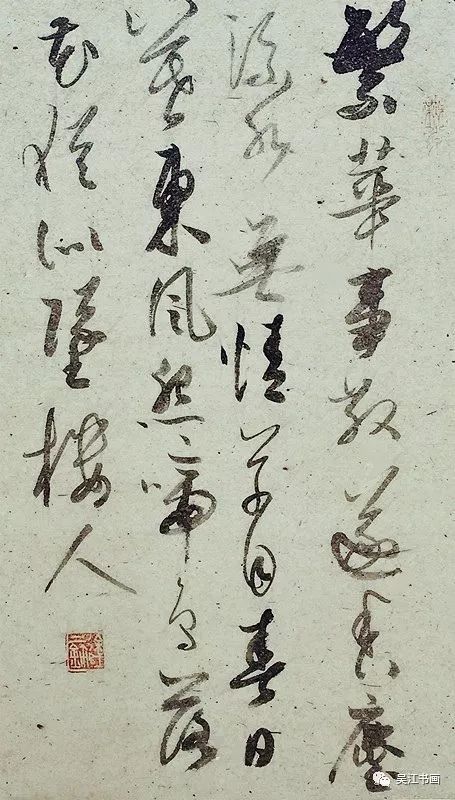 繁華事散逐香塵
流水無情草自春日
暮東風怨啼鳥落
花猶似墜樓人
吴江书画